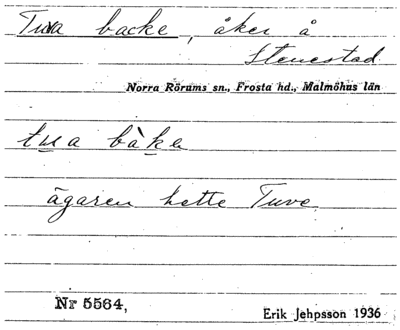 Tuva backe, åker å
Stenestad
Norra Rörums sn., Frosta hd., Malmöhus län
tua bàke
ägaren hette Tuve.
Nr 5564,
Erik Jehpsson 1936